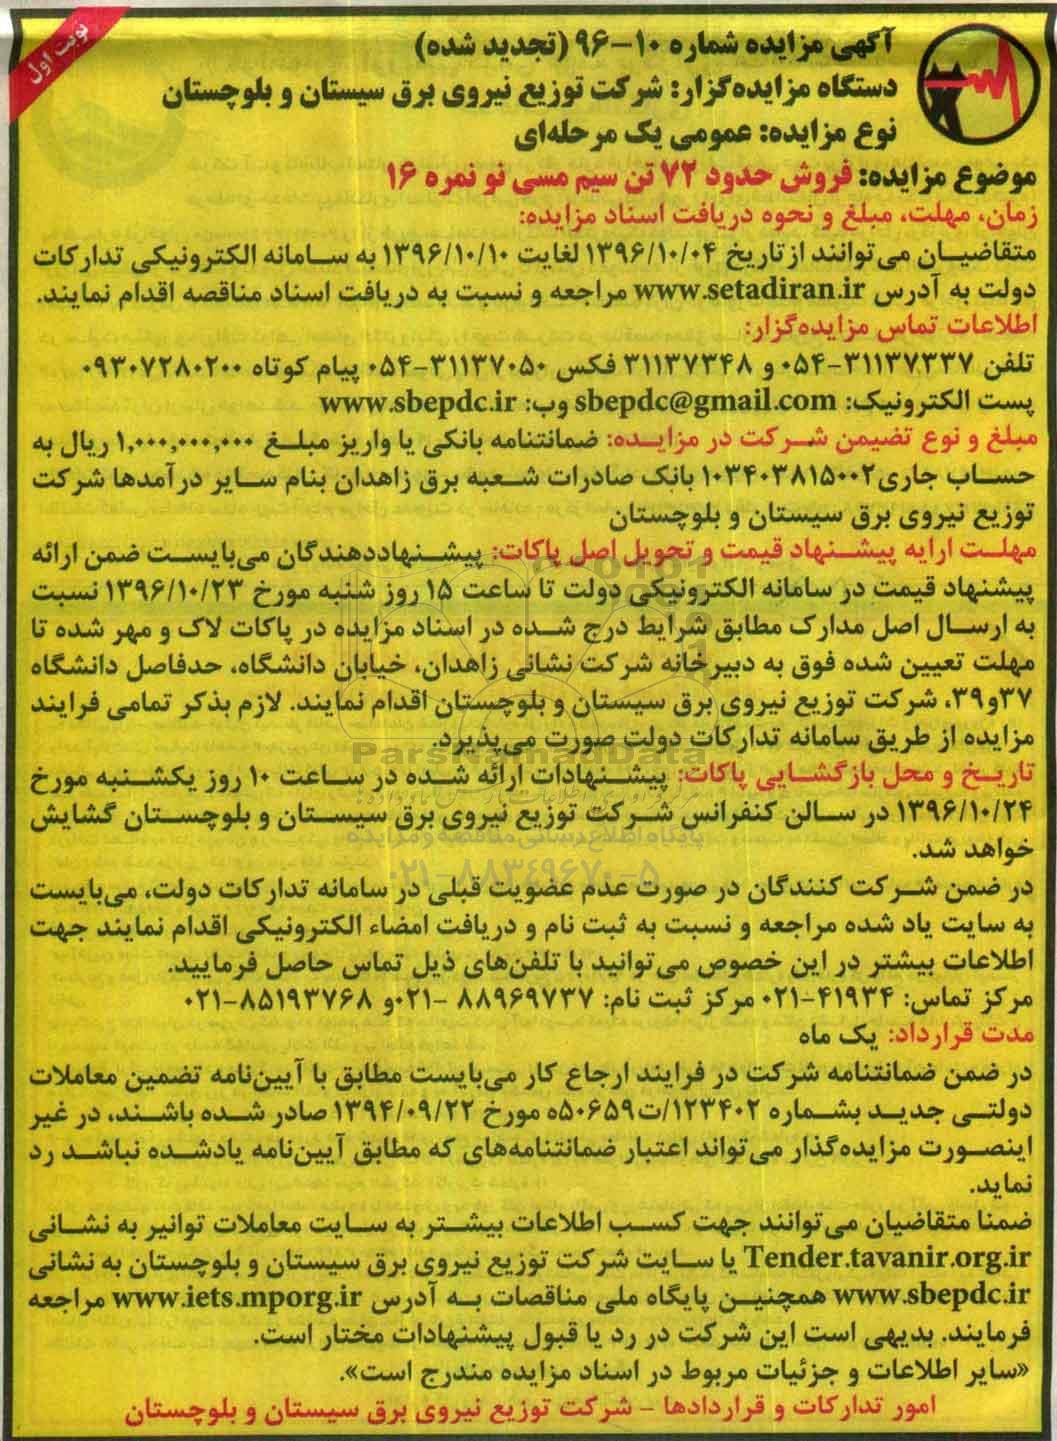 نوبت اول
آگهی مزایده شماره ۱۰-۹۶ (تجدید شده)
دستگاه مزایده‌گزار: شرکت توزیع نیروی برق سیستان و بلوچستان
نوع مزایده: عمومی یک مرحله‌ای
موضوع مزایده: فروش حدود ۷۲ تن سیم مسی نو نمره ۱۶
زمان، مهلت، مبلغ و نحوه دریافت اسناد مزایده:
متقاضیان می‌توانند از تاریخ ۱۳۹۶/۱۰/۰۴ لغایت ۱۳۹۶/۱۰/۱۰ به سامانه الکترونیکی تدارکات
دولت به آدرس www.setadiran.ir مراجعه و نسبت به دریافت اسناد مناقصه اقدام نمایند.
اطلاعات تماس مزایده‌گزار:
تلفن ۳۱۱۳۷۳۳۷-۰۵۴ و ۳۱۱۳۷۳۴۸ فکس ۳۱۱۳۷۰۵۰-۰۵۴ پیام کوتاه ۰۹۳۰۷۲۸۰۲۰۰
پست الکترونیک: sbepdc@gmail.com وب: www.sbepdc.ir
مبلغ و نوع تضیمن شرکت در مزایده: ضمانتنامه بانکی یا واریز مبلغ ۱,۰۰۰,۰۰۰,۰۰۰ ریال به
حساب جاری ۱۰۳۴۰۳۸۱۵۰۰۲ بانک صادرات شعبه برق زاهدان بنام سایر درآمدها شرکت
توزیع نیروی برق سیستان و بلوچستان
مهلت ارایه پیشنهاد قیمت و تحویل اصل پاکات: پیشنهاددهندگان می‌بایست ضمن ارائه
پیشنهاد قیمت در سامانه الکترونیکی دولت تا ساعت ۱۵ روز شنبه مورخ ۱۳۹۶/۱۰/۲۳ نسبت
به ارسال اصل مدارک مطابق شرایط درج شده در اسناد مزایده در پاکات لاک و مهر شده تا
مهلت تعیین شده فوق به دبیرخانه شرکت نشانی زاهدان، خیابان دانشگاه، حدفاصل دانشگاه
۳۷و۳۹، شرکت توزیع نیروی برق سیستان و بلوچستان اقدام نمایند. لازم بذکر تمامی فرایند
مزایده از طریق سامانه تدارکات دولت صورت می‌پذیرد.
ParsNamadData
تاریخ و محل بازگشایی پاکات: پیشنهادات ارائه شده در ساعت ۱۰ روز یکشنبه مورخ
۱۳۹۶/۱۰/۲۴ در سالن کنفرانس شرکت توزیع نیروی برق سیستان و بلوچستان گشایش
پایگاه اطلاع رسانی مناقصه و مزایده
خواهد شد.
۰۲۱-۸۸۳۴۹۶۷۰-۵
در ضمن شرکت کنندگان در صورت عدم عضویت قبلی در سامانه تدارکات دولت، می‌بایست
به سایت یاد شده مراجعه و نسبت به ثبت نام و دریافت امضاء الکترونیکی اقدام نمایند جهت
اطلاعات بیشتر در این خصوص می‌توانید با تلفن‌های ذیل تماس حاصل فرمایید.
مرکز تماس: ۴۱۹۳۴-۰۲۱ مرکز ثبت نام: ۸۸۹۶۹۷۳۷ -۰۲۱و ۸۵۱۹۳۷۶۸-۰۲۱
مدت قرارداد: یک ماه
در ضمن ضمانتنامه شرکت در فرایند ارجاع کار می‌بایست مطابق با آیین‌نامه تضمین معاملات
دولتی جدید بشماره ۱۲۳۴۰۲/ت۵۰۶۵۹ه مورخ ۱۳۹۴/۰۹/۲۲ صادر شده باشند، در غیر
اینصورت مزایده‌گذار می‌تواند اعتبار ضمانتنامه‌های که مطابق آیین‌نامه یادشده نباشد رد
نماید.
ضمنا متقاضیان می‌توانند جهت کسب اطلاعات بیشتر به سایت معاملات توانیر به نشانی
Tender.tavanir.org.ir یا سایت شرکت توزیع نیروی برق سیستان و بلوچستان به نشانی
www.sbepdc.ir همچنین پایگاه ملی مناقصات به آدرس www.iets.mporg.ir مراجعه
فرمایند. بدیهی است این شرکت در رد یا قبول پیشنهادات مختار است.
«سایر اطلاعات و جزئیات مربوط در اسناد مزایده مندرج است».
امور تدارکات و قراردادها - شرکت توزیع نیروی برق سیستان و بلوچستان